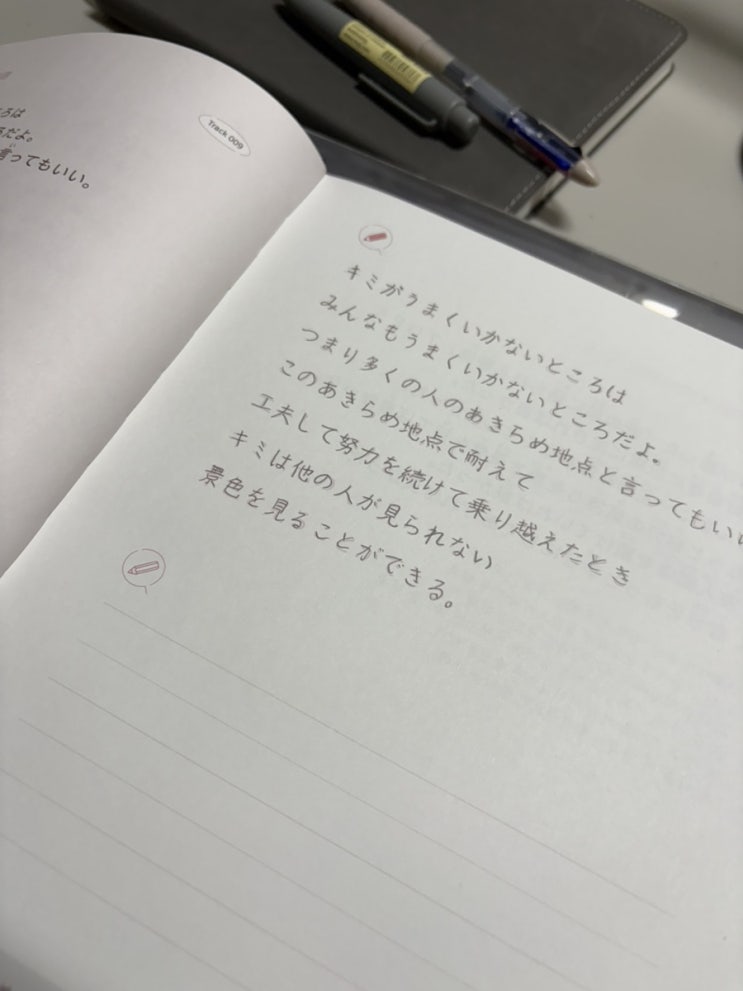 ろは
ろだよ。
言ってもいい。
Track 009
キミがうまくいかないところは
みんなもうまくいかないところだよ。
つまり多くの人のあきらめ地点と言ってもいい
このあきらめ地点で耐えて
工夫して努力を続けて乗り越えたとき
キミは他の人が見られない
景色を見ることができる。